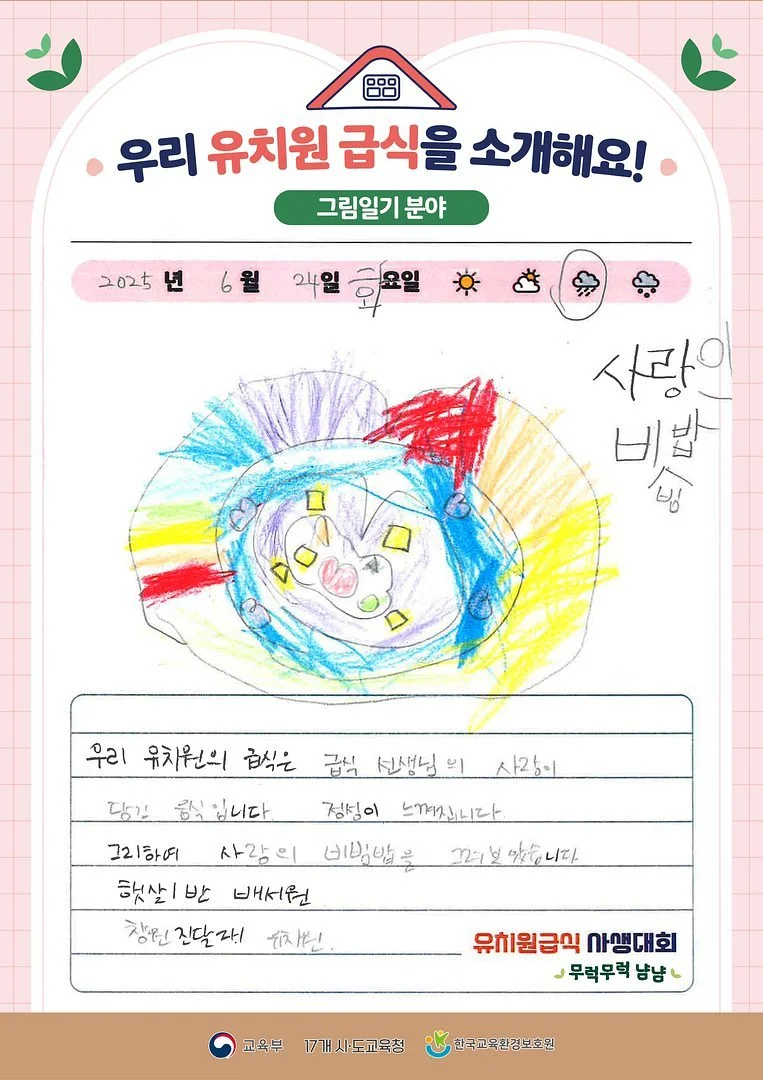 우리 유치원 급식을 소개해요!
그림일기 분야
2025 년 6 월 24일 화요일
사랑의
비밥
빔
우리 유치원의 급식은 급식 선생님의 사랑이
담긴 음식입니다. 정성이 느껴집니다.
그리하여 사랑의 비빔밥을 그려보았습니다
햇살1반 배서원
창원진달래 유치원.
유치원급식 사생대회
무럭무럭 냠냠
교육부 17개 시·도교육청 한국교육환경보호원